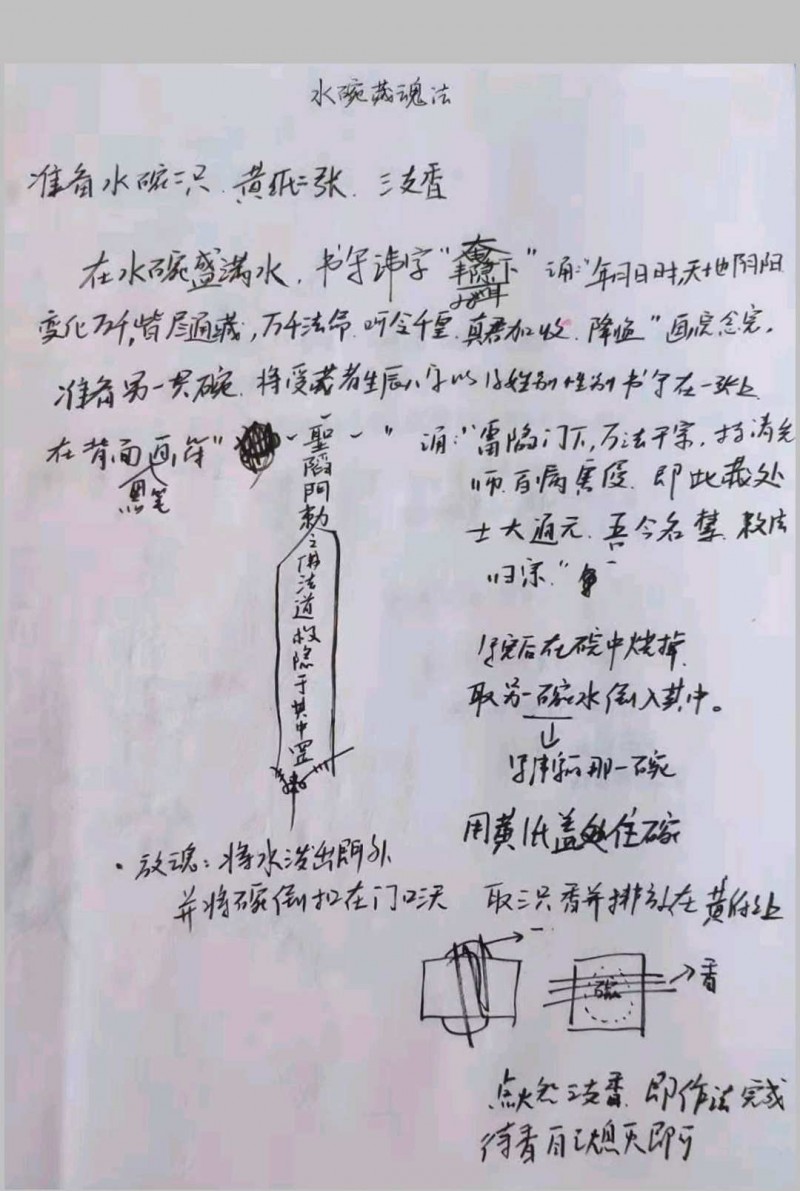 水碗藏魂法
准备水碗二只、黄纸二张、三支香
在水碗盛满水，书写讳字“ ”诵：“年月日时，天地阴阳
变化万千，皆尽通藏，万千法命，听令千里，真君加收，降临”画完念完，
准备另一只碗，将受藏者生辰八字以及姓别性别书写在一张上
在背面画符“ ”诵：“雷隐门下，万法千宗，
黑笔
师百病 ，即此藏处
士大通元，吾今名 ，敕法
归宗”
一聖 阿勅
令佛法道 收隐于其中罡
写完后在碗中烧掉，
取另一碗水倒入其中。
写 那一碗
用黄纸盖住碗
·放魂：将水泼出門外
并将碗倒扣在门口 天
取三只香并排放在黄纸上
一
碗
香
点燃三支香，即作法完成
待香自己熄灭即可